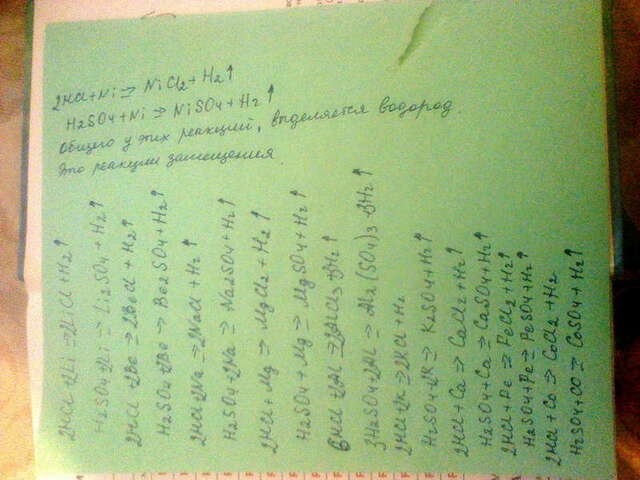 2HCl + 2Li => 2LiCl + H2↑
H2SO4 + 2Li => Li2SO4 + H2↑
2HCl + 2Be => 2BeCl + H2↑
H2SO4 + 2Be => Be2SO4 + H2↑
2HCl + 2Na => 2NaCl + H2↑
H2SO4 + 2Na => Na2SO4 + H2↑
2HCl + Mg => MgCl2 + H2↑
H2SO4 + Mg => MgSO4 + H2↑
6HCl + 2Al => 2AlCl3 + 3H2↑
3H2SO4 + 2Al => Al2(SO4)3 + 3H2↑
2HCl + 2K => 2KCl + H2
H2SO4 + 2K => K2SO4 + H2↑
2HCl + Ca => CaCl2 + H2↑
H2SO4 + Ca => CaSO4 + H2↑
2HCl + Fe => FeCl2 + H2↑
H2SO4 + Fe => FeSO4 + H2↑
2HCl + Co => CoCl2 + H2
H2SO4 + CO => CoSO4 + H2↑
2HCl + Ni => NiCl2 + H2↑
H2SO4 + Ni => NiSO4 + H2↑
Общего у этих реакций, выделяется водород.
Это реакции замещения